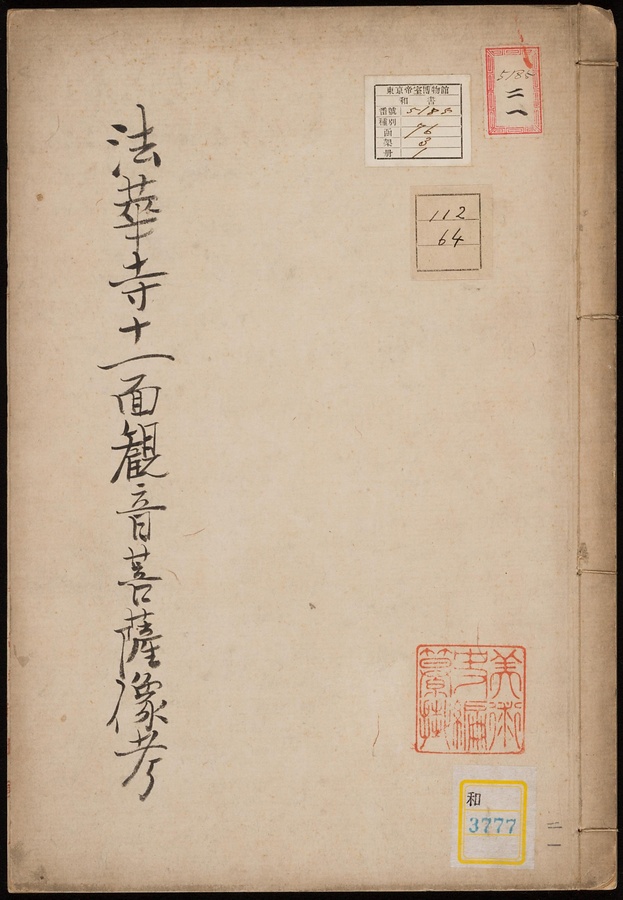 法華寺十一面觀音菩薩像考
東京帝室博物館
和書
番號 5185
種別
函 76
架 3
冊 1
5185
二一
112
64
美術
史編
纂掛
和
3777
二一